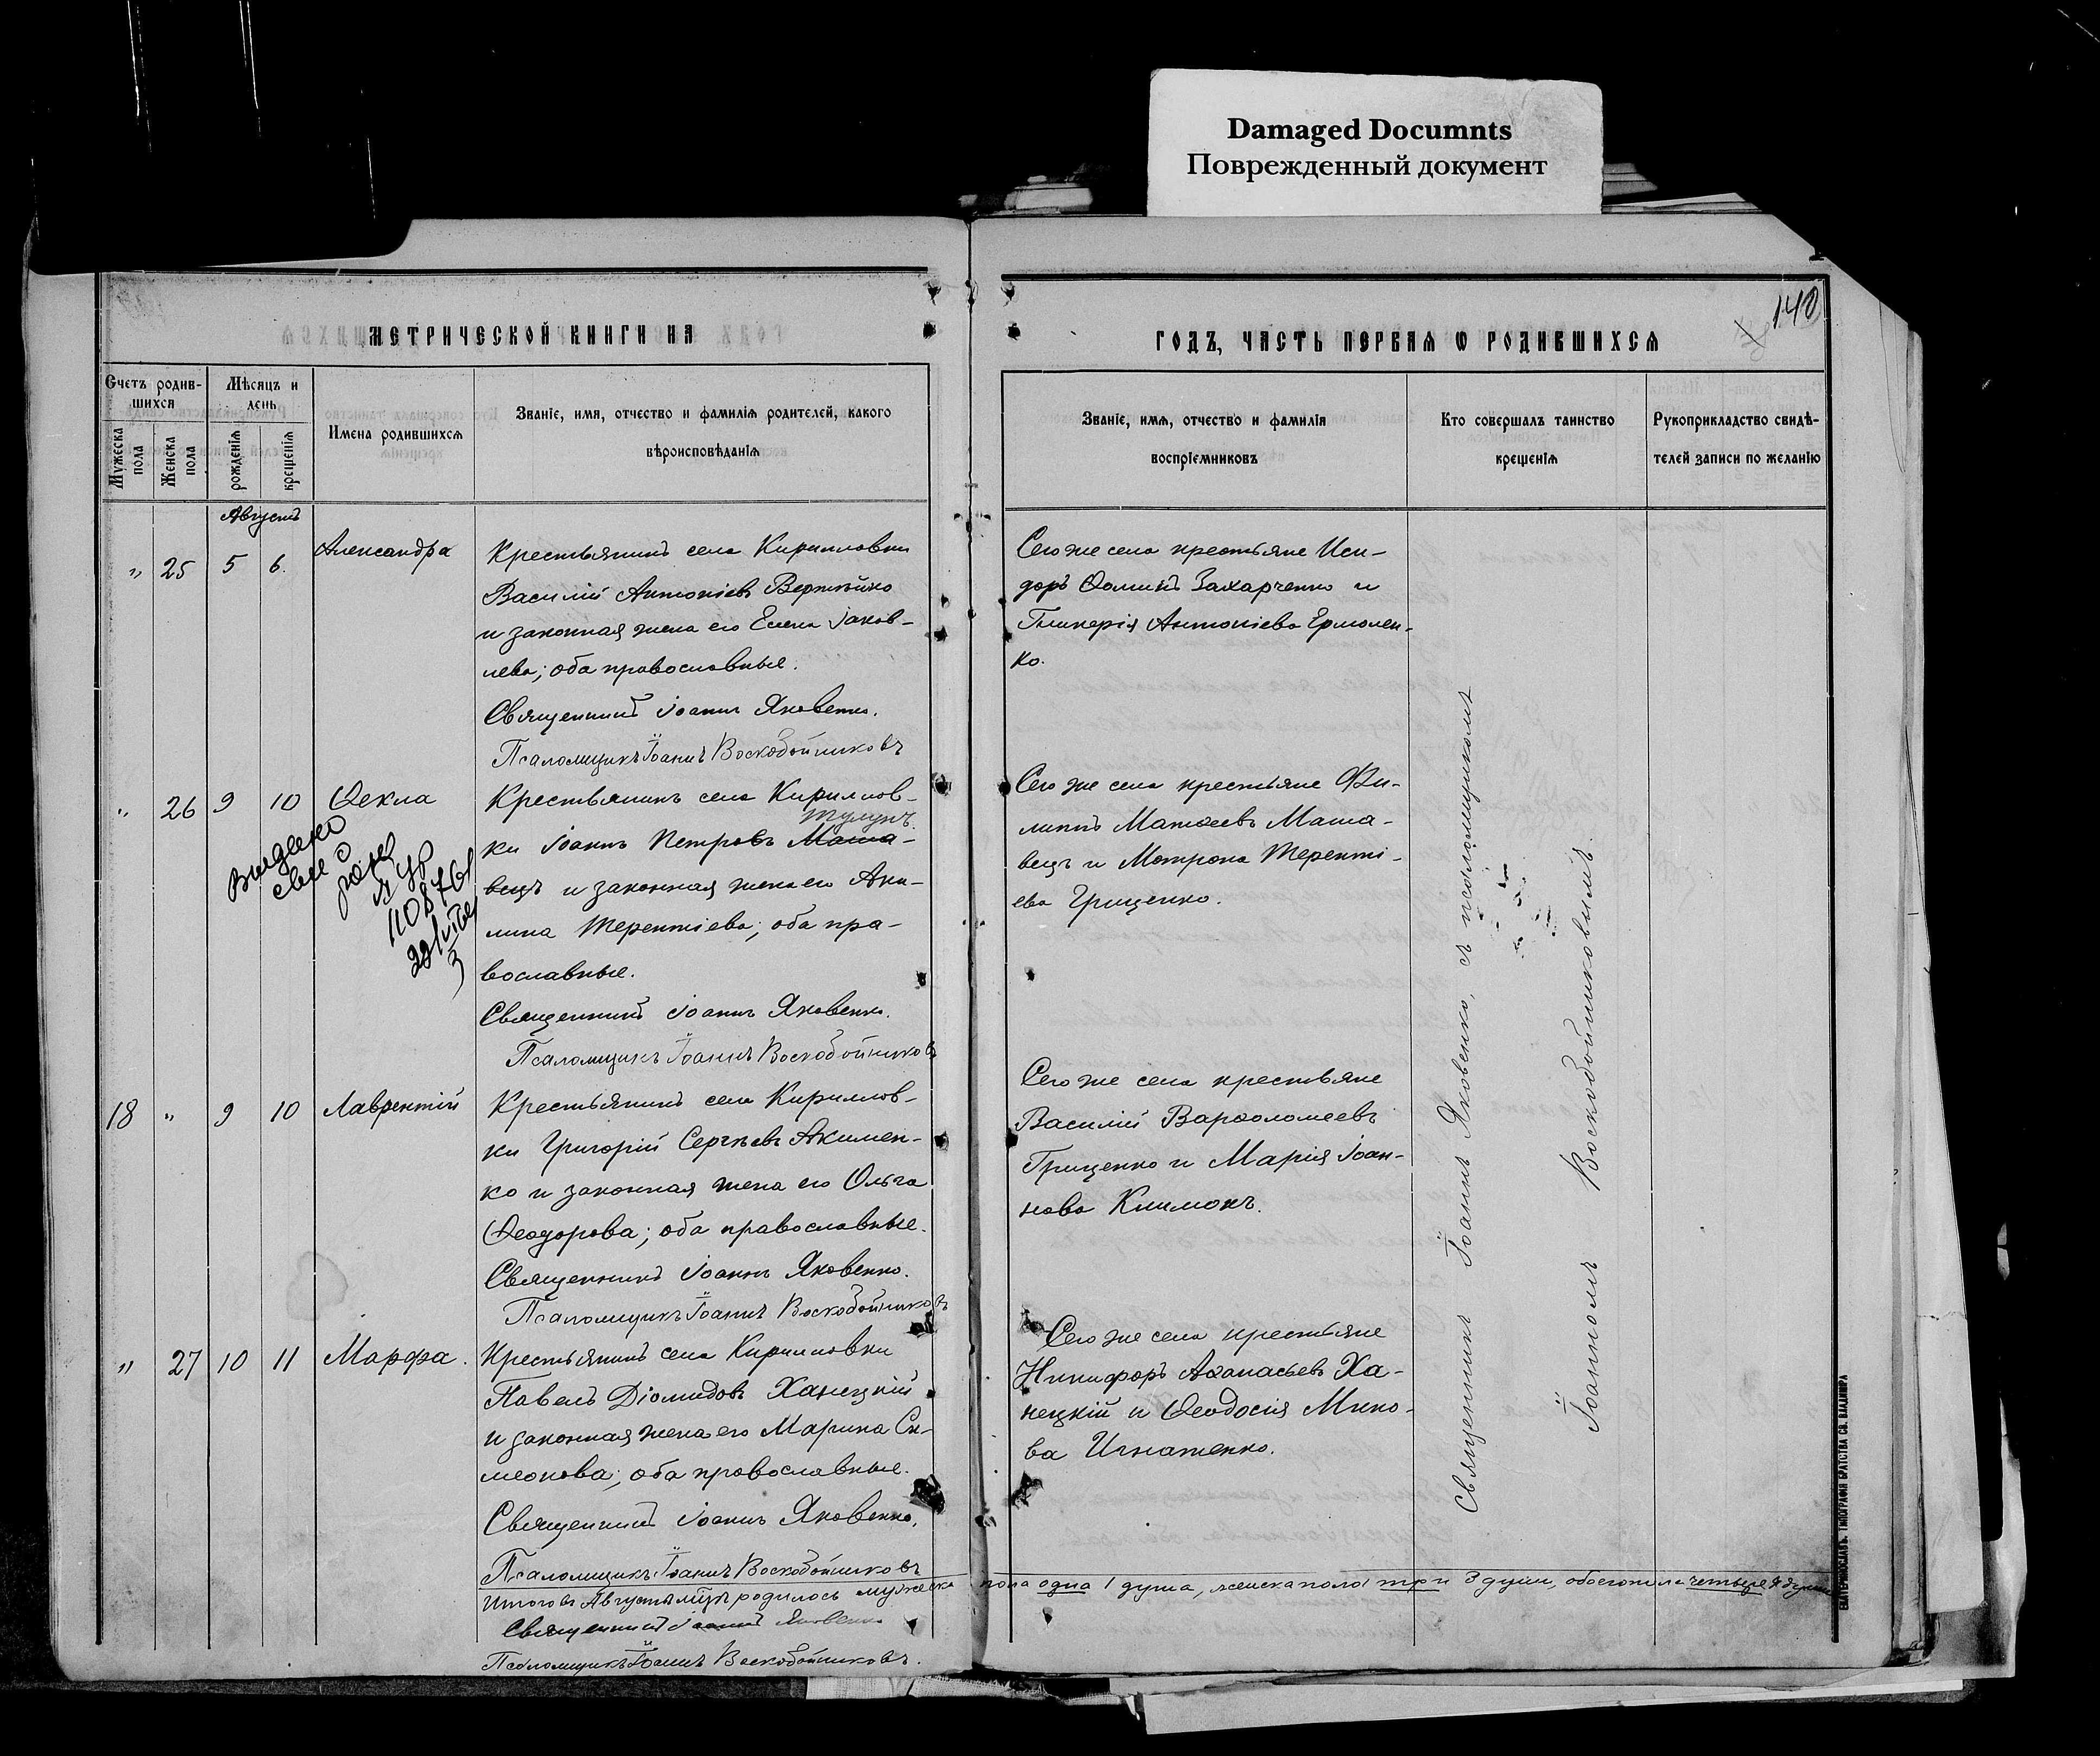 Damaged Documnts
Поврежденный документ
140
МЕТРИЧЕСКОЙ КНИГИ НА
ГОДЪ, ЧАСТЬ ПЕРВАЯ Ѡ РОДИВШИХСѦ
Счетъ родив-
шихся
Мужеска пола
Женска пола
Мѣсяцъ и
день
рожденія
крещенія
Имена родившихсѧ
Званіе, имя, отчество и фамилія родителей, какого
вѣроисповѣданія
Званіе, имя, отчество и фамилія
воспріемниковъ
Кто совершалъ таинство
крещенія
Рукоприкладство свидѣ-
телей записи по желанію
Августъ
" 25 5 6. Александра
Крестьянинъ села Кирилловки
Василій Антоніевъ Вертѣйко
и законная жена его Елена Іаков-
лева; оба православные.
Священникъ Іоаннъ Яковенко.
Псаломщикъ Іоаннъ Воскобойниковъ
Сего же села крестьяне Иси-
доръ Ѳоминъ Захарченко и
Гликерія Антоніева Ермолен-
ко.
" 26 9 10 Ѳекла
Крестьянинъ села Кириллов-
Тулупъ.
ки Іоаннъ Петровъ Маша-
вецъ и законная жена его Аки-
лина Терентіева; оба пра-
вославные.
Священникъ Іоаннъ Яковенко.
Псаломщикъ Іоаннъ Воскобойниковъ
Видано
110876
Сего же села крестьяне Фи-
липпъ Матѳеевъ Маша-
вецъ и Матрона Теренті-
ева Грищенко.
18 " 9 10 Лаврентій
Крестьянинъ села Кириллов-
ки Григорій Сергѣевъ Акимен-
ко и законная жена его Ольга
Ѳеодорова; оба православные.
Священникъ Іоаннъ Яковенко.
Псаломщикъ Іоаннъ Воскобойниковъ
Сего же села крестьяне
Василій Варѳоломеевъ
Грищенко и Марія Іоан-
нова Климокъ.
" 27 10 11 Марфа.
Крестьянинъ села Кирилловки
Павелъ Діомидовъ Ханецкій
и законная жена его Марина Си-
меонова; оба православные.
Священникъ Іоаннъ Яковенко.
Псаломщикъ Іоаннъ Воскобойниковъ
Сего же села крестьяне
Никифоръ Аѳанасьевъ Ха-
нецкій и Ѳеодосія Мино-
ва Игнатенко.
Священникъ Іоаннъ Яковенко, съ псаломщикомъ
Іоанномъ Воскобойниковымъ.
Итого въ Августѣ м-цѣ родилось мужеска пола одна 1 душа, женска пола три 3 души, обоего пола четыре 4 души
Священникъ Іоаннъ Яковенко
Псаломщикъ Іоаннъ Воскобойниковъ.
ЕКАТЕРИНОСЛАВЪ. ТИПОГРАФІЯ БРАТСТВА СВ. ВЛАДИМІРА